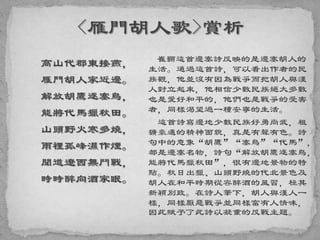 <雁門胡人歌>賞析
高山代郡東接燕，
雁門胡人家近邊。
解放胡鷹逐塞鳥，
能將代馬獵秋田。
山頭野火寒多燒，
雨裡孤峰濕作煙。
聞道遼西無鬥戰，
時時醉向酒家眠。
崔顥這首邊塞詩反映的是邊塞胡人的
生活。通過這首詩，可以看出作者的民
族觀，他並沒有因為戰爭而把胡人與漢
人對立起來，他相信少數民族絕大多數
也是愛好和平的，他們也是戰爭的受害
者，同樣渴望過一種安寧的生活。
這首詩寫邊地少數民族好勇尚武，粗
獷豪邁的精神面貌，真是有聲有色。詩
句中的意象“胡鷹”“塞鳥”“代馬”，
都是邊塞名物，詩句“解放胡鷹逐塞鳥，
能將代馬獵秋田”，很有邊地景物的特
點。秋日出獵，山頭野燒的代北景色及
胡人在和平時期從容醉酒的風習，極其
新穎別致。在詩人筆下，胡人與漢人一
樣，同樣厭惡戰爭並同樣富有人情味，
因此賦予了此詩以凝重的反戰主題。